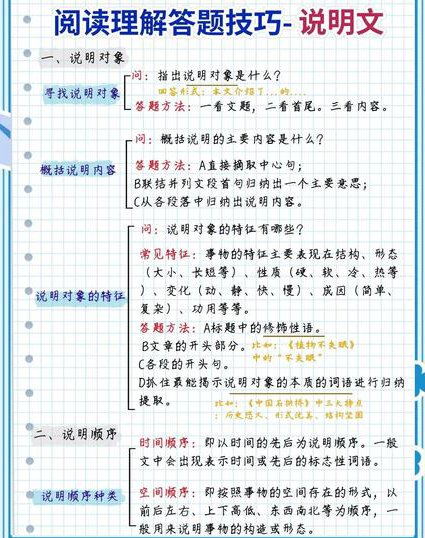 阅读理解答题技巧-说明文
一、说明对象
寻找说明对象
问：指出说明对象是什么？
回答形式：本文介绍了...的....
答题方法：一看文题，二看首尾。三看内容。
概括说明内容
问：概括说明的主要内容是什么？
答题方法：A直接摘取中心句；
B联结并列文段首句归纳出一个主要意思；
C从各段落中归纳出说明内容。
说明对象的特征
问：说明对象的特征有哪些？
常见特征：事物的特征主要表现在结构、形态
（大小、长短等）、性质（硬、软、冷、热等
）、变化（动、静、快、慢）、成因（简单、
复杂）、功用等等。
答题方法：A标题中的修饰性语。
B文章的开头部分。比如：《植物不失眠》
中的“不失眠”
C各段的开头句。
D抓住最能揭示说明对象的本质的词语进行归纳
提取。
比如：《中国石拱桥》中三大特点
：历史悠久、形式优美、结构坚固
二、说明顺序
说明顺序种类
时间顺序：即以时间的先后为说明顺序。一般
文中会出现表示时间或先后的标志性词语。
空间顺序：即按照事物的空间存在的形式，以
前后左右、上下高低、东西南北等为顺序，一
般用来说明事物的构造或形态。